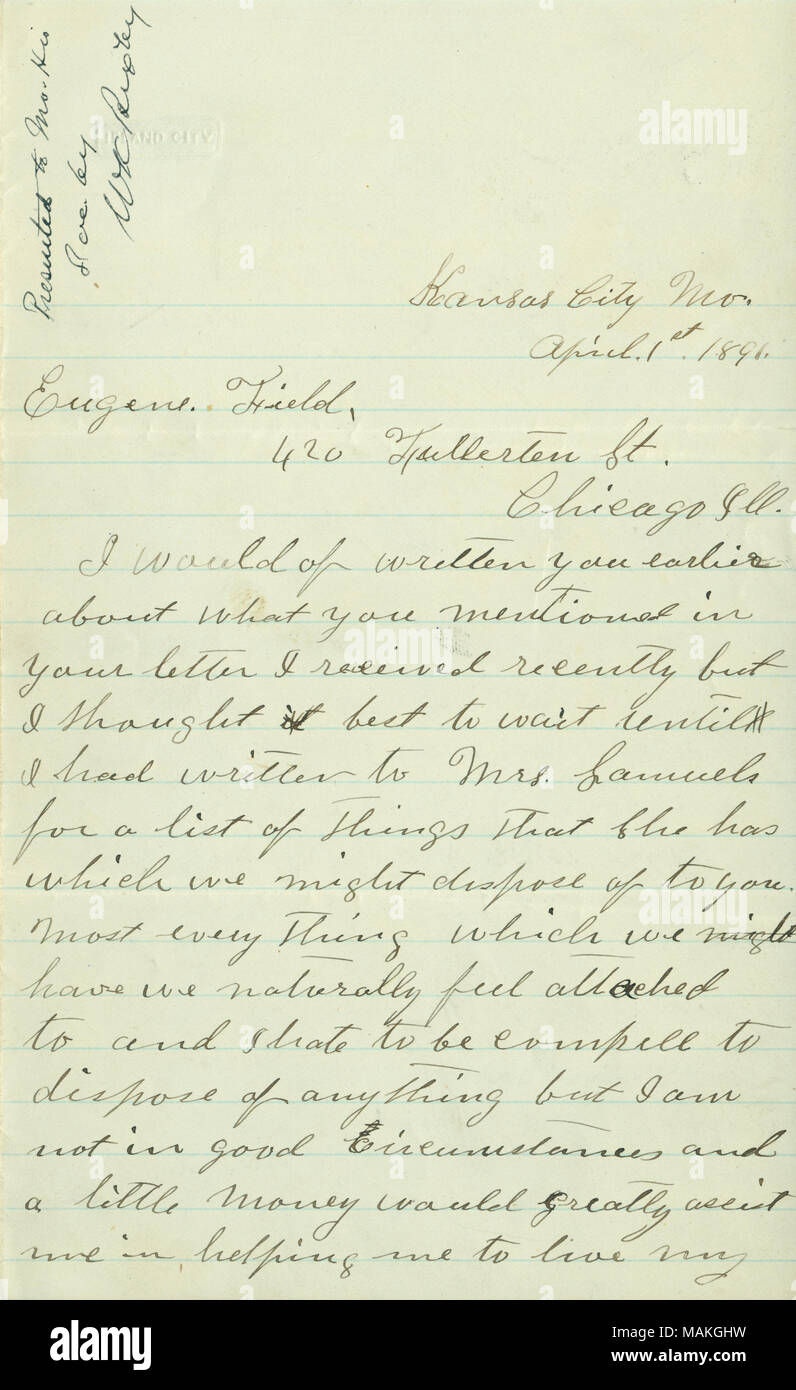 Presented to Mo. His
Soc. by
WK Bixby
INLAND CITY
Kansas City Mo.
April. 1st. 1891.
Eugene. Field,
420 Fullerten St.
Chicago Ill.
I would of written you earlier
about what you mentioned in
your letter I received recently but
I thought it best to wait until
I had written to Mrs. Samuels
for a list of things that She has
which we might dispose of to you.
Most every thing which we might
have we naturally feel attached
to and I hate to be compell to
dispose of anything but I am
not in good Circumstances and
a little money would greatly assist
me in helping me to live my
alamy
alamy
alamy
alamy
alamy
Image ID: MAKGHW
www.alamy.com